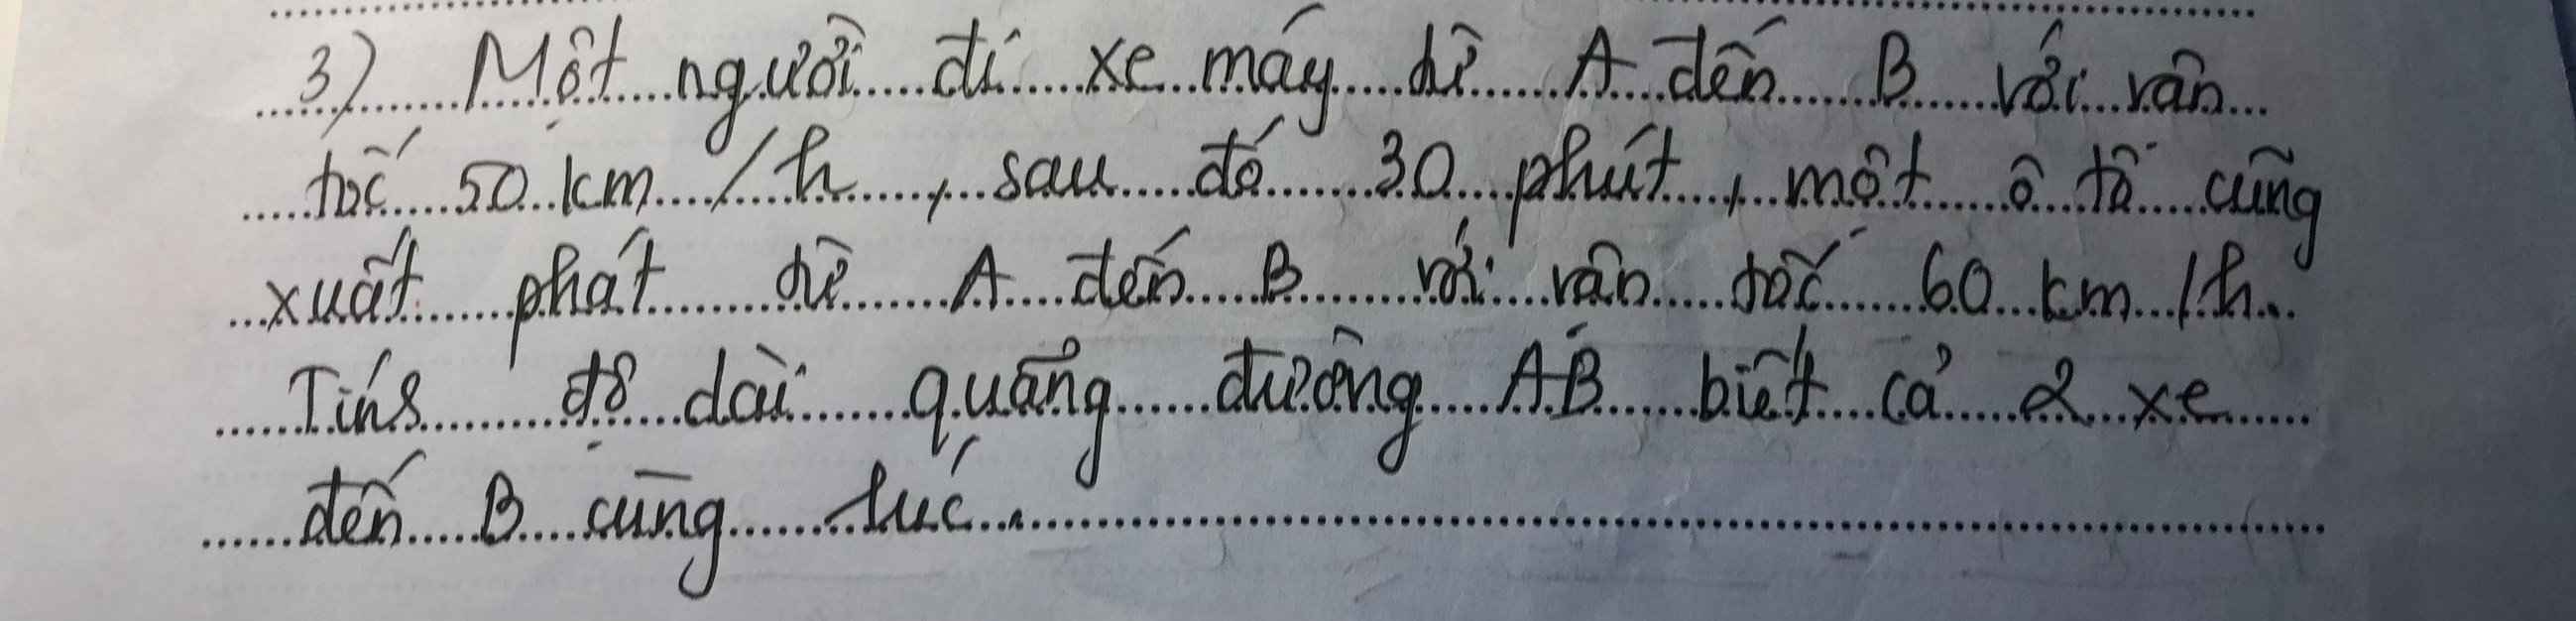 3) Một người đi xe máy từ A đến B với vân
tốc 50 km /h, sau đó 30 phút, một ô tô cũng
xuất phát từ A đến B với vân tốc 60 km /h.
Tính độ dài quãng đường AB biết cả 2 xe
đến B cùng lúc.